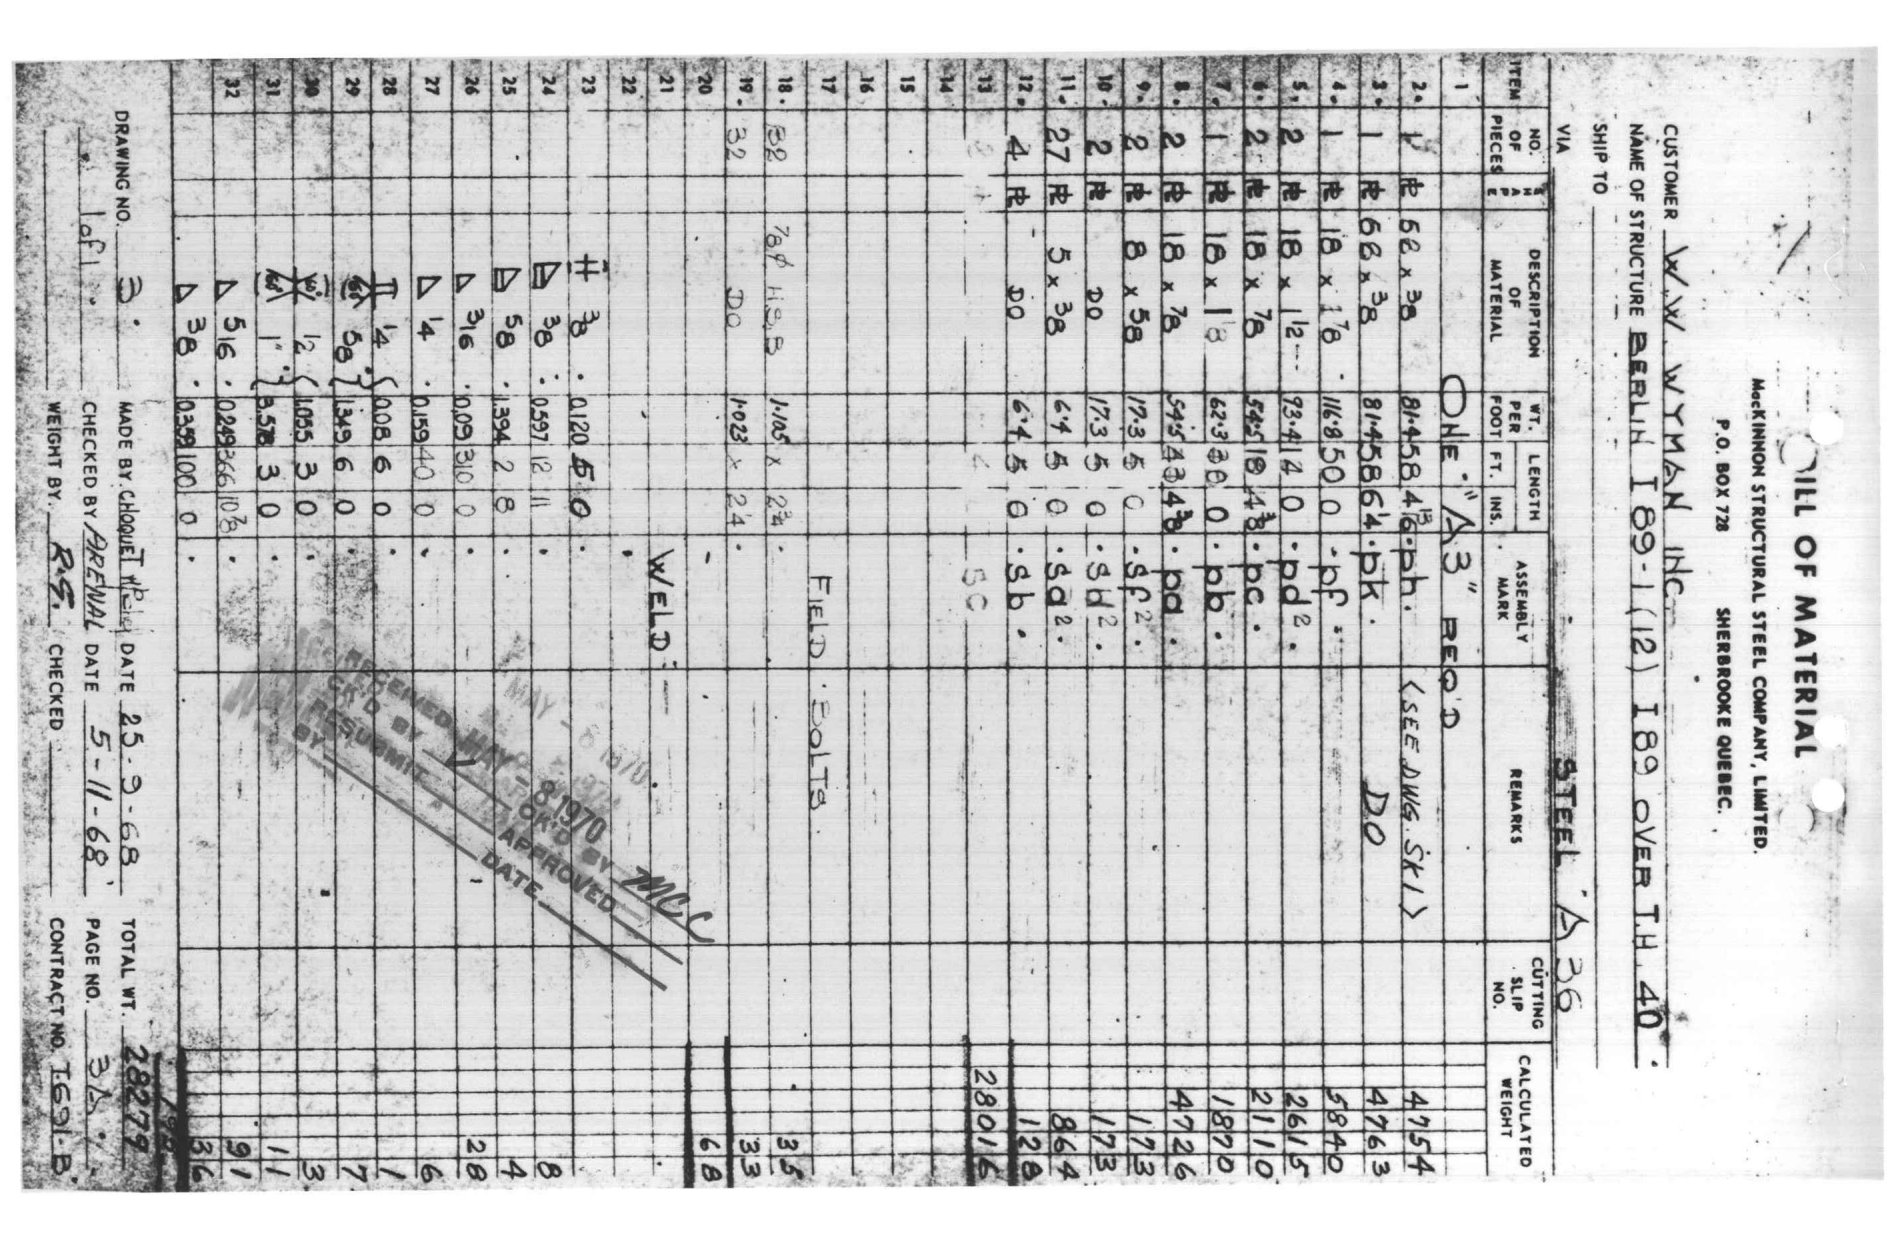 BILL OF MATERIAL
MacKINNON STRUCTURAL STEEL COMPANY, LIMITED.
P.O. BOX 728 SHERBROOKE QUEBEC.
CUSTOMER W.W. WYMAN INC.
NAME OF STRUCTURE BERLIN I 89-1(12) I 89 OVER T.H. 40.
SHIP TO
VIA STEEL A 36
ITEM NO. OF PIECES SHAPE DESCRIPTION OF MATERIAL WT. PER FOOT LENGTH FT. INS. ASSEMBLY MARK REMARKS CUTTING SLIP NO. CALCULATED WEIGHT
1 ONE "A3" REQ'D
2. 1 PL 52 x 3/8 81.4 58 4 13/16 ph. (SEE DWG. SK1) 4754
3. 1 PL 62 x 3/8 81.4 58 6 1/4 pk. DO 4763
4. 1 PL 18 x 1 7/8 116.8 50 0 pf 5840
5. 2 PL 18 x 1 1/2 93.4 14 0 pd2. 2615
6. 2 PL 18 x 7/8 54.5 18 4 3/8 pc. 2110
7. 1 PL 18 x 1 1/8 62.3 30 0 pb. 1870
8. 2 PL 18 x 7/8 54.5 43 4 3/8 pa. 4726
9. 2 PL 8 x 5/8 17.3 5 0 sf2. 173
10. 2 PL DO 17.3 5 0 sd2. 173
11. 27 PL 5 x 3/8 6.4 5 0 sa2. 864
12. 4 PL DO 6.4 5 0 sb. 128
13 28016
14
15
16
17 FIELD BOLTS
18. 32 7/8 φ H.S.B 1.105 x 2 3/4 35
19. 32 DO 1.023 x 2 1/4 33
20 68
21 WELD:
22
23 3/8 0.120 5 0
24 3/8 0.597 12 11 8
25 5/8 1.394 2 8 4
26 3/16 0.09 310 0 28
27 1/4 0.159 40 0 6
28 1/4 0.08 6 0 1
29 5/8 1.349 6 0 7
30 1/2 1.055 3 0 3
31 1" 3.578 3 0 11
32 5/16 0.249 366 10 7/8 91
3/8 0.359 100 0 36
MAY - 8 1970
RECEIVED MAY - 8 1970
CK'D BY OK'D BY MCC
RESUBMIT APPROVED
BY DATE
DRAWING NO. 3. MADE BY CHOQUET DATE 25-9-68 TOTAL WT. 28279
1 of 1. CHECKED BY ARENAL DATE 5-11-68 PAGE NO. 3A
WEIGHT BY R.G. CHECKED CONTRACT NO. T.691-B.